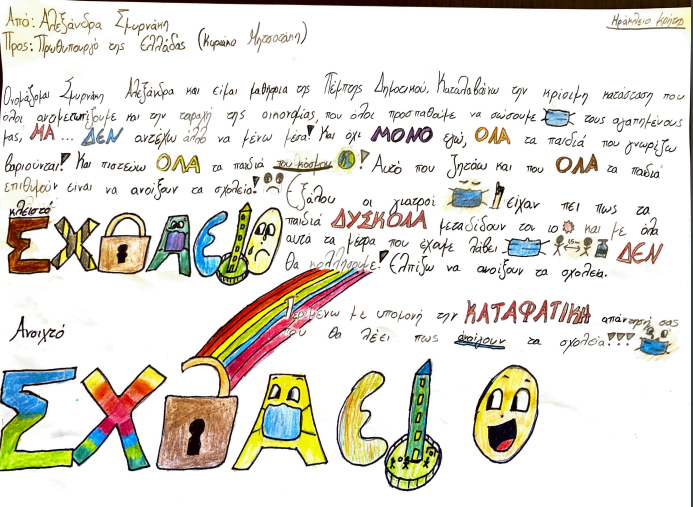 Από: Αλεξάνδρα Σμυρνάκη
Ηράκλειο Κρήτης
Προς: Πρωθυπουργό της Ελλάδας (Κυριάκο Μητσοτάκη)
Ονομάζομαι Σμυρνάκη Αλεξάνδρα και είμαι μαθήτρια της Πέμπτης Δημοτικού. Καταλαβαίνω την κρίσιμη κατάσταση που
όλοι αντιμετωπίζουμε και την ταραχή της οικονομίας, που όλοι προσπαθούμε να σώσουμε τους αγαπημένους
μας, ΜΑ... ΔΕΝ αντέχω άλλο να μένω μέσα! Και όχι ΜΟΝΟ εγώ, ΟΛΑ τα παιδιά που γνωρίζω
βαριούνται! Και πιστεύω ΟΛΑ τα παιδιά του κόσμου! Αυτό που ζητάω και που ΟΛΑ τα παιδιά
επιθυμούν είναι να ανοίξουν τα σχολεία! Εξάλλου οι γιατροί είχαν πει πως τα
παιδιά ΔΥΣΚΟΛΑ μεταδίδουν τον ιο και με όλα
αυτά τα μέτρα που έχομε λάβει ΔΕΝ
θα κολλήσουμε! Ελπίζω να ανοίξουν τα σχολεία.
κλειστό
ΣΧΟΛΕΙΟ
Περιμένω με υπομονή την ΚΑΤΑΦΑΤΙΚΗ απάντησή σας
που θα λέει πως ανοίγουν τα σχολεία!!!
Ανοιχτό
ΣΧΟΛΕΙΟ